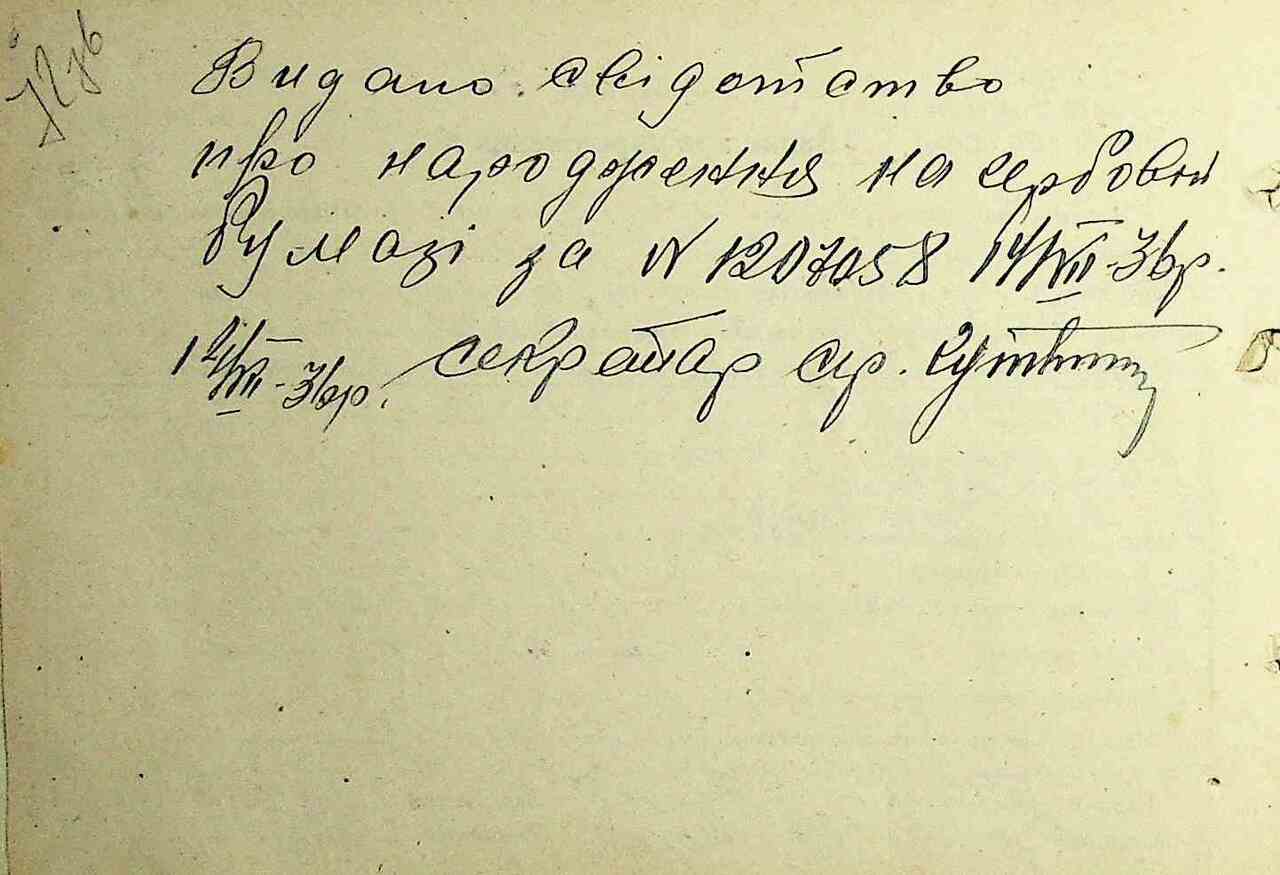 Видано свідотство
про народження на сербовій
бумазі за N 1207058 14/VII-36р.
14/VII-36р. секретар с/р.